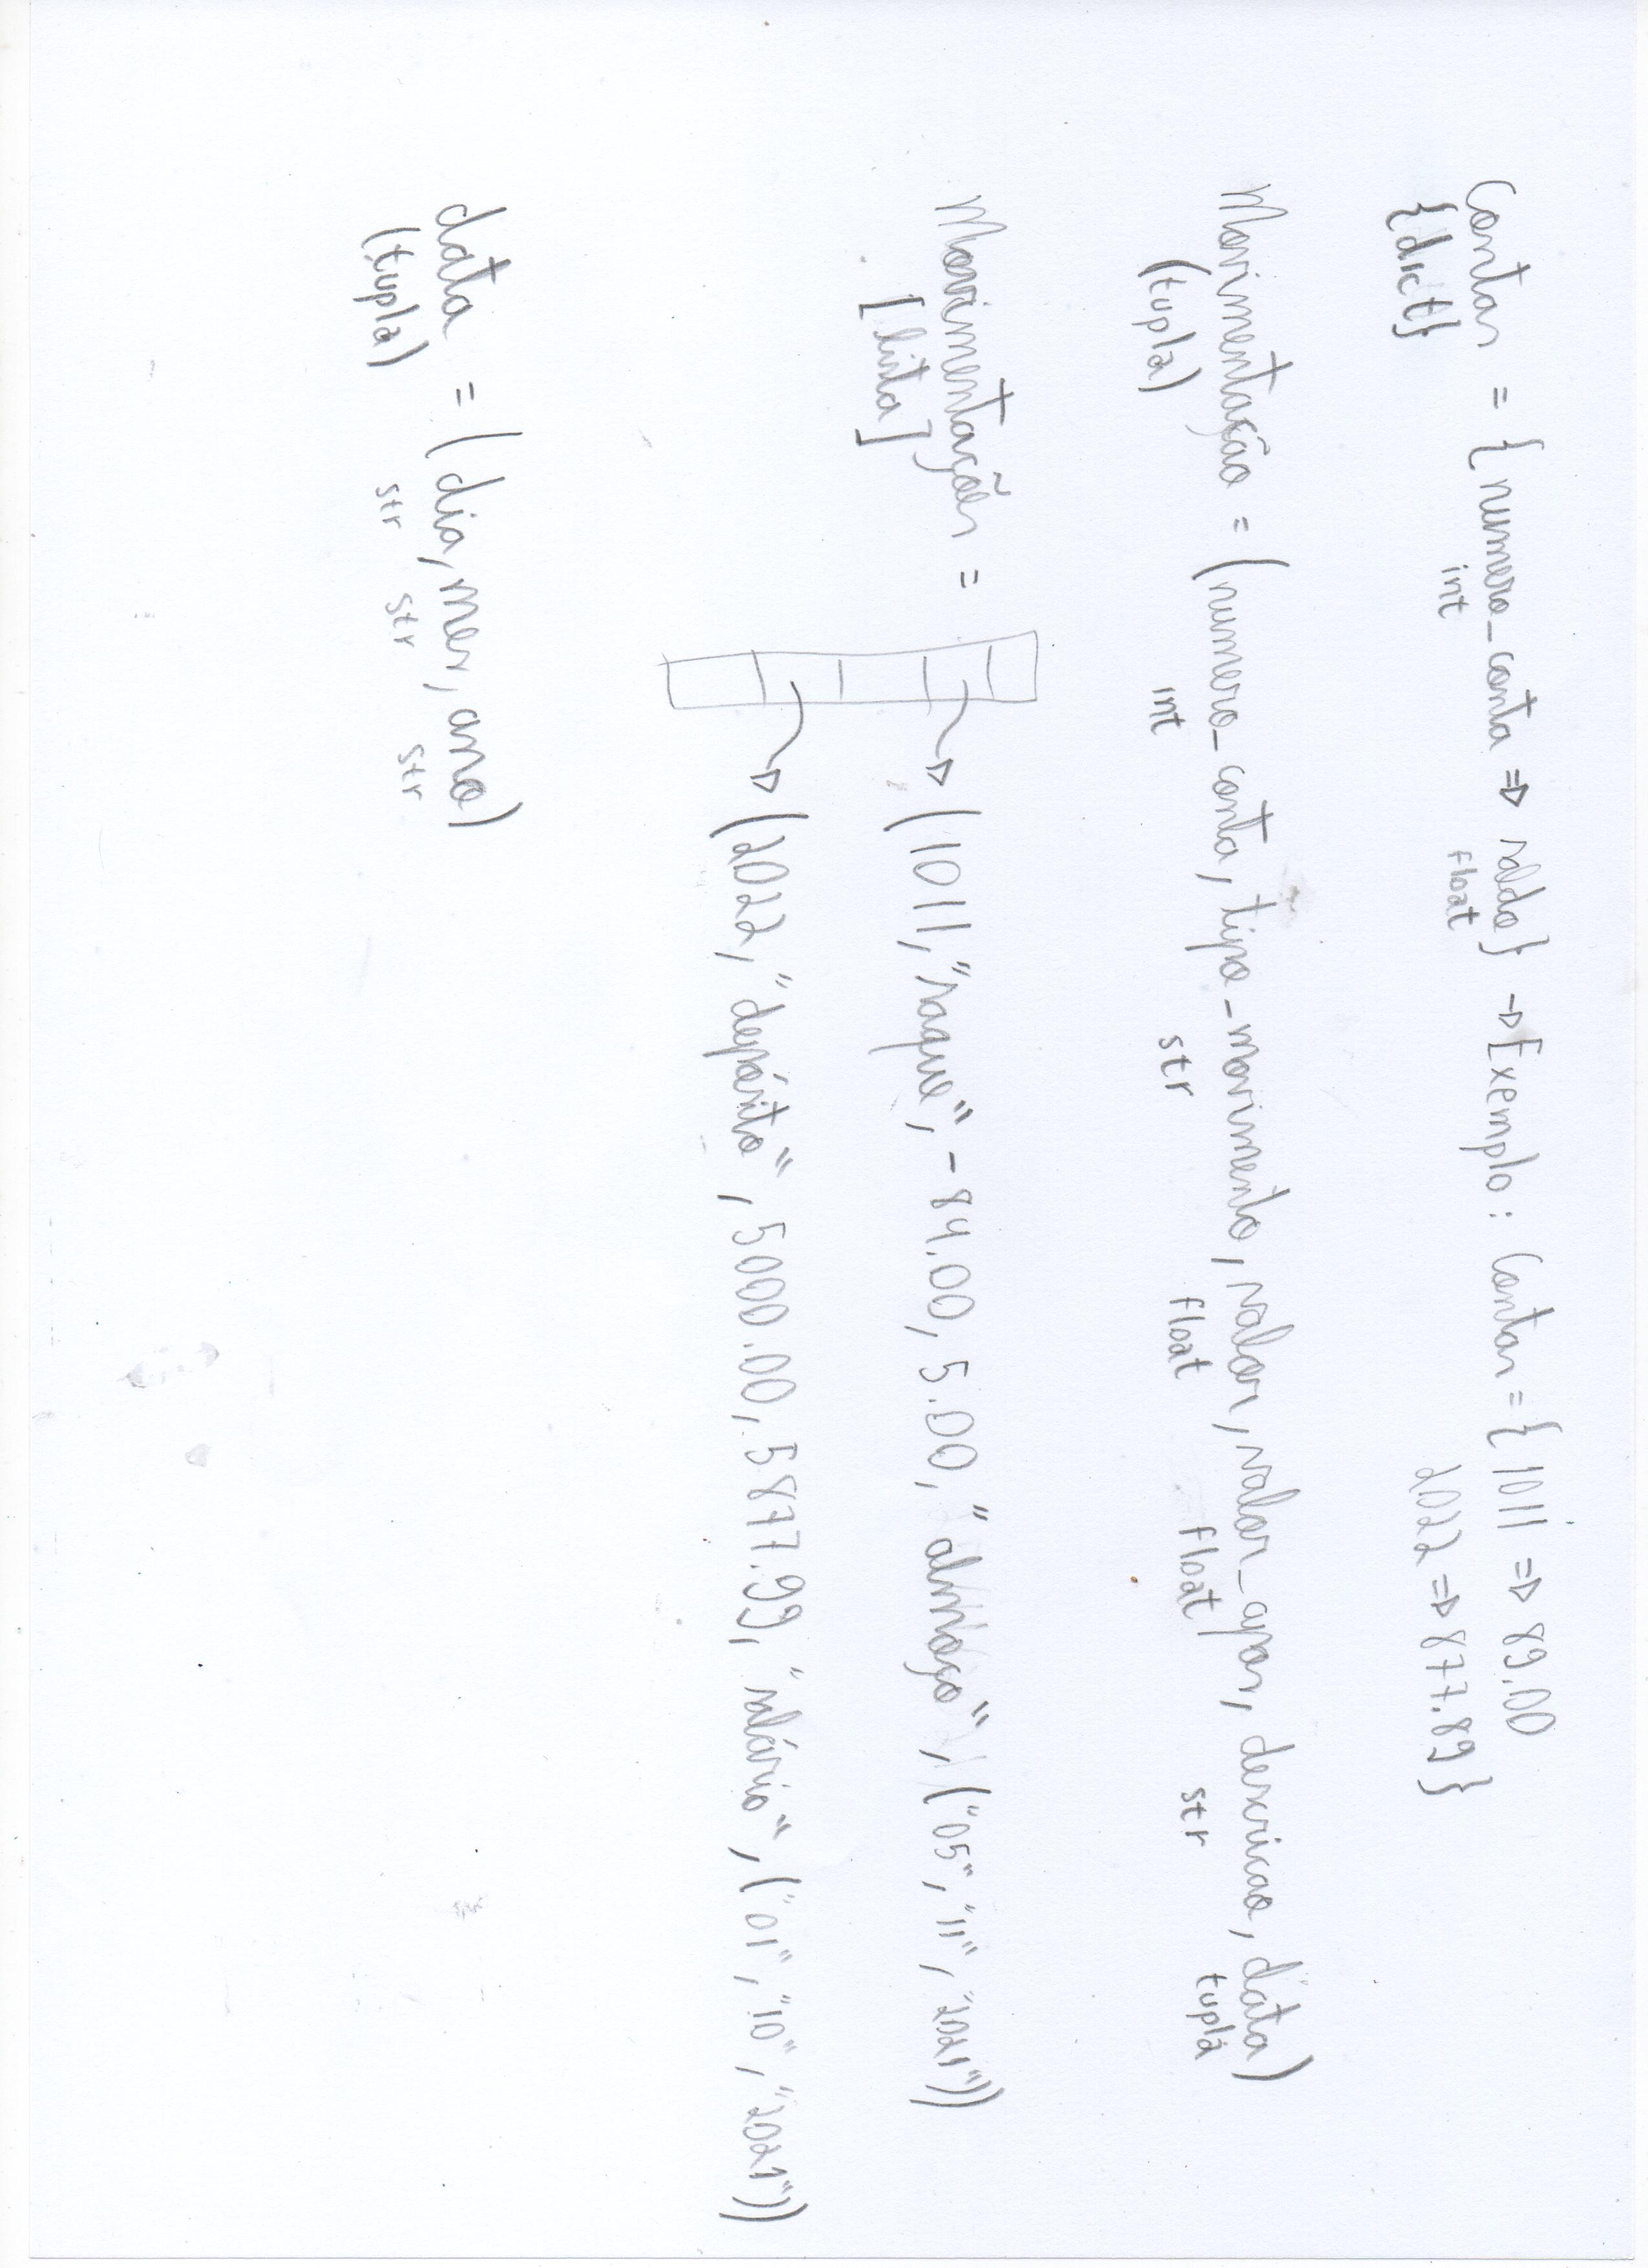 Contas = {numero_conta => saldo} -> Exemplo: Contas = {1011 => 89.00
int float 2022 => 877.89}
{dict}
Movimentação = (numero_conta, tipo_movimento, valor, valor_apos, descricao, data)
(tupla) int str float float str tupla
Movimentações =
[lista]
(1011, "saque", -84.00, 5.00, "almoço", ("05", "11", "2021"))
(2022, "depósito", 5000.00, 5877.99, "salário", ("01", "10", "2021"))
data = (dia, mes, ano)
(tupla) str str str